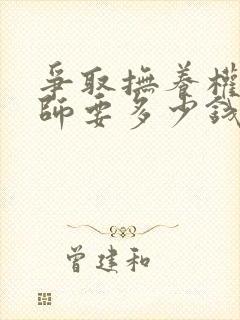 爭取撫養權
師要多少錢
曾建和